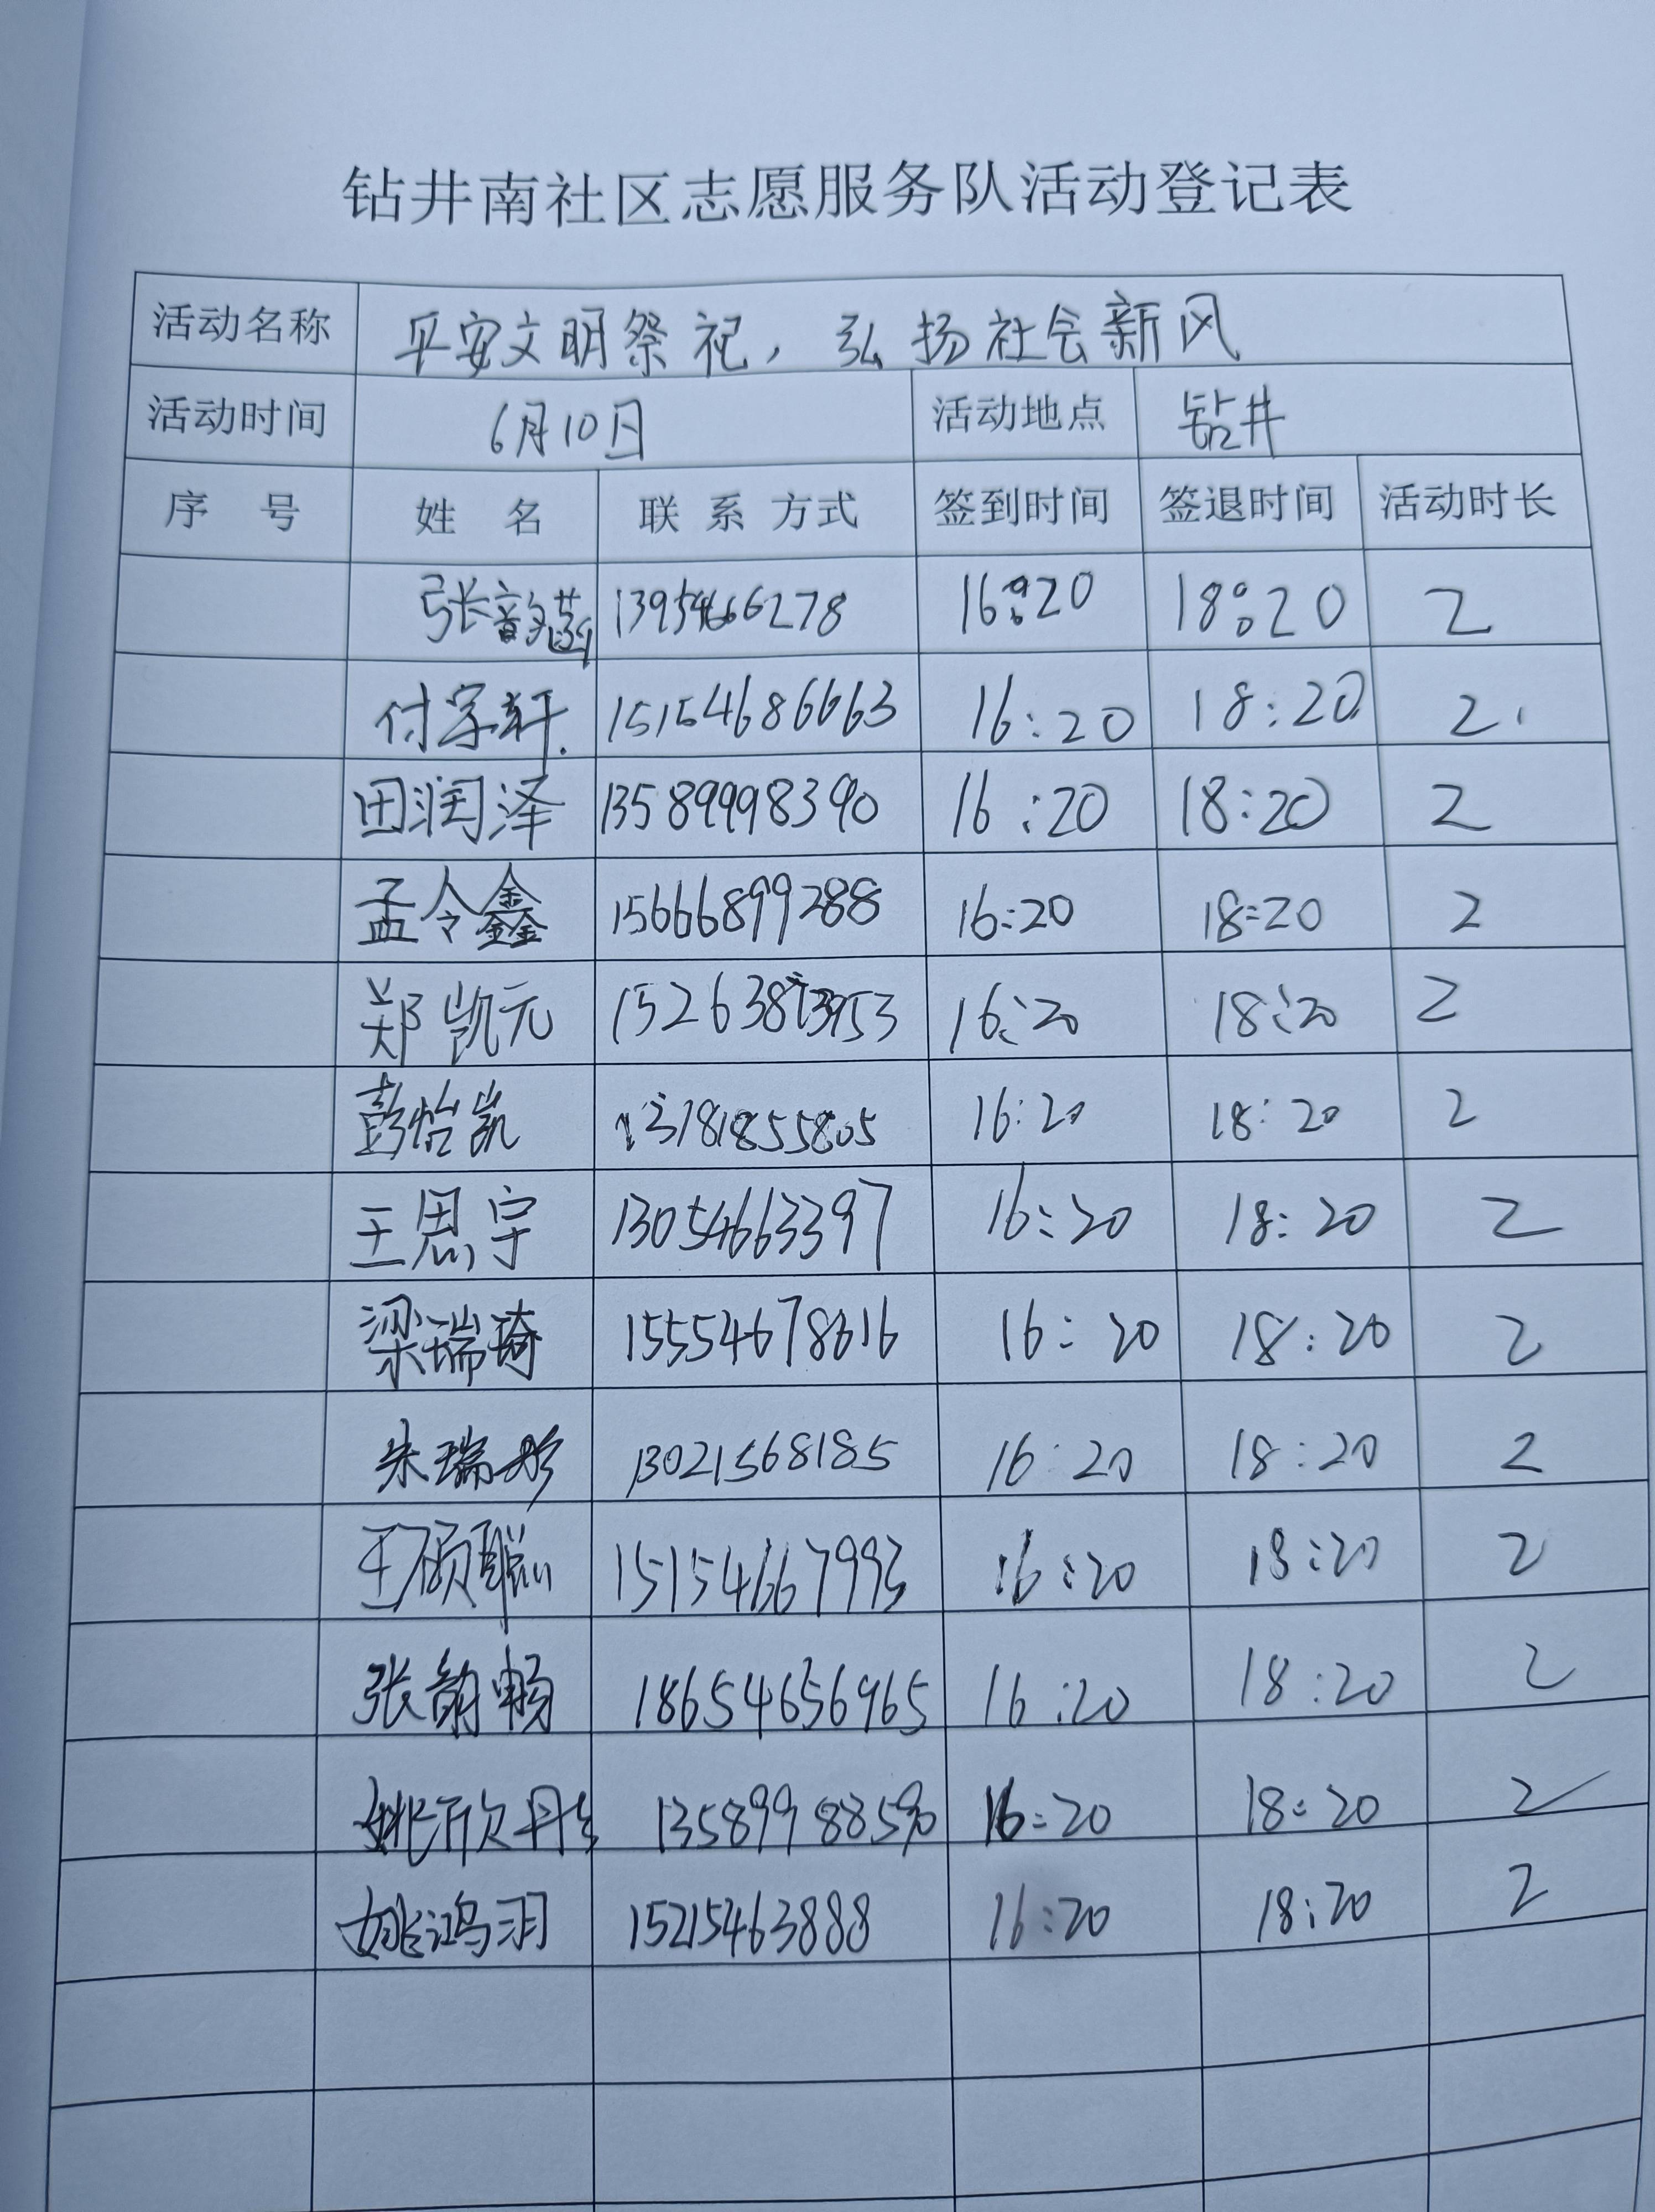 钻井南社区志愿服务队活动登记表
活动名称 平安文明祭祀，弘扬社会新风
活动时间 6月10日 活动地点 钻井
序 号 姓 名 联系方式 签到时间 签退时间 活动时长
张韵菡 16:20 18:20 2
付字轩 15154686663 16:20 18:20 2
田润泽 13589998390 16:20 18:20 2
孟令鑫 15666899288 16:20 18:20 2
郑凯元 16:20 18:20 2
彭怡凯 13181855805 16:20 18:20 2
王思宇 13054663397 16:20 18:20 2
梁瑞琦 15554678616 16:20 18:20 2
朱瑞彤 13021568185 16:20 18:20 2
王硕聪 15154667993 16:20 18:20 2
张韵畅 18654656965 16:20 18:20 2
姚欣丹 13589988590 16:20 18:20 2
姚鸿羽 15215463888 16:20 18:20 2